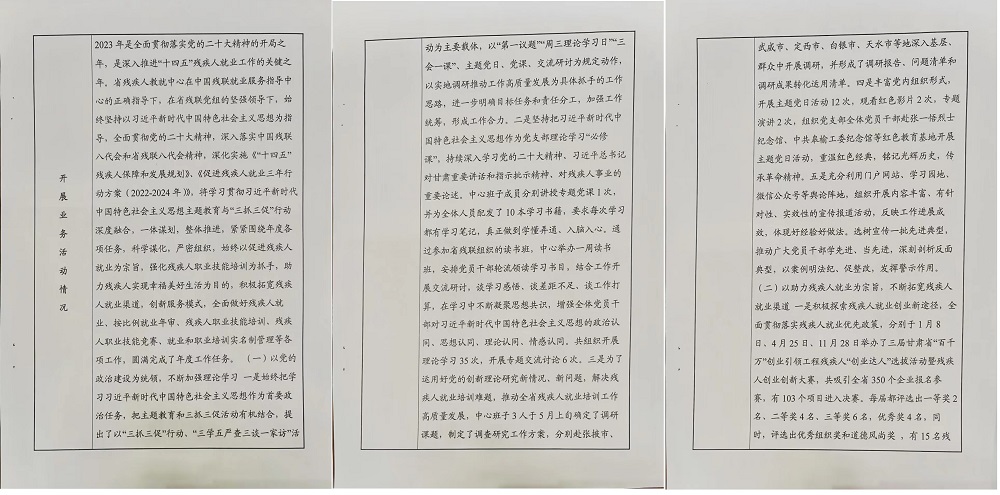 开展业务活动情况
2023 年是全面贯彻落实党的二十大精神的开局之
年，是深入推进“十四五”残疾人就业工作的关键之
年。省残疾人教就中心在中国残联就业服务指导中
心的正确指导下，在省残联党组的坚强领导下，始
终坚持以习近平新时代中国特色社会主义思想为指
导，全面贯彻党的二十大精神，深入落实中国残联
八代会和省残联八代会精神，深化实施《“十四五”
残疾人保障和发展规划》、《促进残疾人就业三年行
动方案（2022-2024 年）》，将学习贯彻习近平新时代
中国特色社会主义思想主题教育与“三抓三促”行动
深度融合，一体谋划，整体推进，紧紧围绕年度各
项任务，科学谋化，严密组织，始终以促进残疾人
就业为宗旨，强化残疾人职业技能培训为抓手，助
力残疾人实现幸福美好生活为目的，积极拓宽残疾
人就业渠道，创新服务模式，全面做好残疾人就
业、按比例就业年审、残疾人职业技能培训、残疾
人职业技能竞赛、就业和职业培训实名制管理等各
项工作，圆满完成了年度工作任务。（一）以党的
政治建设为统领，不断加强理论学习 一是始终把学
习习近平新时代中国特色社会主义思想作为首要政
治任务，把主题教育和三抓三促活动有机结合，提
出了以“三抓三促”行动、“三学五严查三谈一家访”活
动为主要载体，以“第一议题”“周三理论学习日”“三
会一课”、主题党日、党课、交流研讨为规定动作，
以实地调研推动工作高质量发展为具体抓手的工作
思路，进一步明确目标任务和责任分工，加强工作
统筹，形成工作合力。二是坚持把习近平新时代中
国特色社会主义思想作为党支部理论学习“必修
课”，持续深入学习党的二十大精神、习近平总书记
对甘肃重要讲话和指示批示精神、对残疾人事业的
重要论述。中心班子成员分别讲授专题党课 1 次，
并为全体人员配发了 10 本学习书籍，要求每次学习
都有学习笔记，真正做到学懂弄通、入脑入心。通
过参加省残联组织的读书班，中心举办一周读书
班，安排党员干部轮流领读学习书目，结合工作开
展交流研讨，谈学习感悟、谈差距不足、谈工作打
算，在学习中不断凝聚思想共识，增强全体党员干
部对习近平新时代中国特色社会主义思想的政治认
同、思想认同、理论认同、情感认同。共组织开展
理论学习 35 次，开展专题交流讨论 6 次。三是为了
运用好党的创新理论研究新情况、新问题，解决残
疾人就业培训难题，推动全省残疾人就业培训工作
高质量发展，中心班子 3 人于 5 月上旬确定了调研
课题，制定了调查研究工作方案，分别赴张掖市、
武威市、定西市、白银市、天水市等地深入基层、
群众中开展调研，并形成了调研报告、问题清单和
调研成果转化运用清单。四是丰富党内组织形式，
开展主题党日活动 12 次，观看红色影片 2 次，专题
演讲 2 次，组织党支部全体党员干部赴张一悟烈士
纪念馆、中共皋榆工委纪念馆等红色教育基地开展
主题党日活动，重温红色经典，铭记光辉历史，传
承革命精神。五是充分利用门户网站、学习园地、
微信公众号等舆论阵地，组织开展内容丰富、有针
对性、实效性的宣传报道活动，反映工作进展成
效，体现好经验好做法。选树宣传一批先进典型，
推动广大党员干部学先进、当先进，深刻剖析反面
典型，以案例明法纪、促整改，发挥警示作用。
（二）以助力残疾人就业为宗旨，不断拓宽残疾人
就业渠道 一是积极探索残疾人就业创业新途径，全
面贯彻落实残疾人就业优先政策，分别于 1 月 8
日、4 月 25 日、11 月 28 日举办了三届甘肃省“百千
万”创业引领工程残疾人“创业达人”选拔活动暨残疾
人创业创新大赛，共吸引全省 350 个企业报名参
赛，有 103 个项目进入决赛。每届都评选出一等奖 2
名、二等奖 4 名、三等奖 6 名，优秀奖 4 名。同
时，评选出优秀组织奖和道德风尚奖 ，有 15 名残